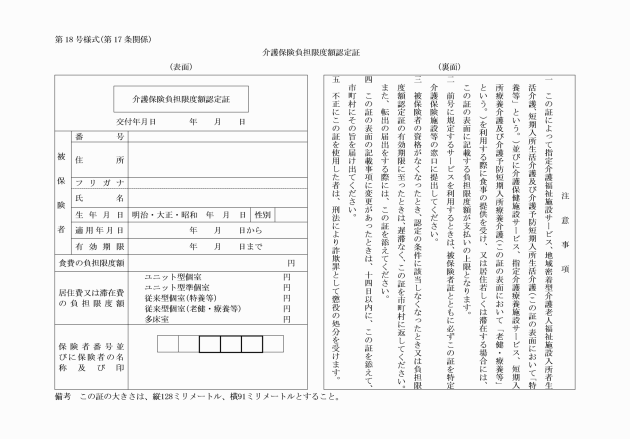 第18号様式(第17条関係)
介護保険負担限度額認定証
(表面)
介護保険負担限度額認定証
交付年月日　年　月　日
被保険者
番号
住所
フリガナ
氏名
生年月日　明治・大正・昭和　年　月　日　性別
適用年月日　年　月　日から
有効期限　年　月　日まで
食費の負担限度額　円
居住費又は滞在費
の負担限度額
ユニット型個室　円
ユニット型準個室　円
従来型個室(特養等)　円
従来型個室(老健・療養等)　円
多床室　円
保険者番号並
びに保険者の名
称及び印
(裏面)
注意事項
一　この証によって指定介護福祉施設サービス、地域密着型介護老人福祉施設入所者生
活介護、短期入所生活介護及び介護予防短期入所生活介護(この証の表面において「特
養等」という。)並びに介護保健施設サービス、指定介護療養施設サービス、短期入
所療養介護及び介護予防短期入所療養介護(この証の表面において「老健・療養等」
という。)を利用する際に食事の提供を受け、又は居住若しくは滞在する場合には、
この証の表面に記載する負担限度額が支払いの上限となります。
二　前号に規定するサービスを利用するときは、被保険者証とともに必ずこの証を特定
介護保険施設等の窓口に提出してください。
三　被保険者の資格がなくなったとき、認定の条件に該当しなくなったとき又は負担限
度額認定証の有効期限に至ったときは、遅滞なく、この証を市町村に返してください。
また、転出の届出をする際には、この証を添えてください。
四　この証の表面の記載事項に変更があったときは、十四日以内に、この証を添えて、
市町村にその旨を届け出てください。
五　不正にこの証を使用した者は、刑法により詐欺罪として懲役の処分を受けます。
備考　この証の大きさは、縦128ミリメートル、横91ミリメートルとすること。